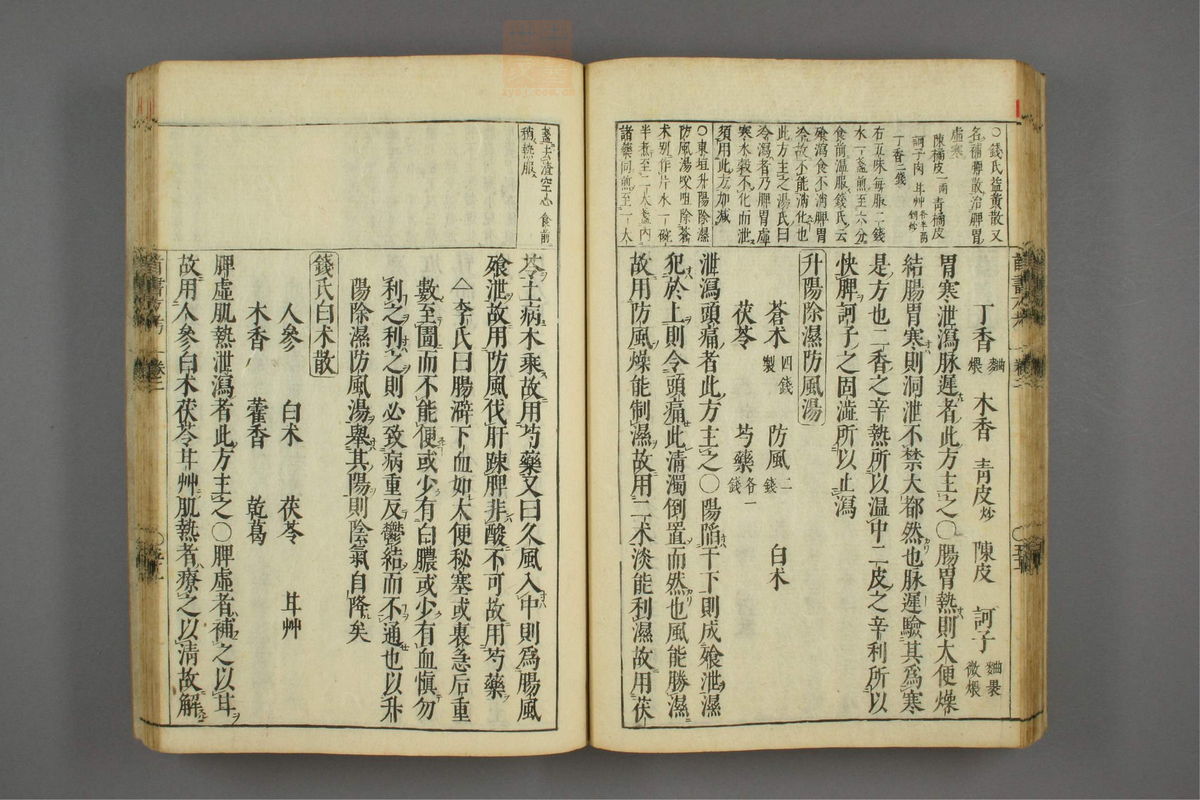 ○錢氏益黃散又
名補脾散治脾胃
虛寒
陳橘皮一兩 青橘皮
訶子肉 甘艸各半兩 剉炒
丁香二錢
右五味每服二錢
水一盞煎至六分
食前溫服錢氏云
飧瀉食不消脾胃
冷故不能消化也
此方主之湯氏曰
冷瀉者乃脾胃虛
寒水穀不化而泄
須用此方加減
○東垣升陽除濕
防風湯㕮咀除蒼
术別作片水一碗
半煮至二大盞內
諸藥同煎至一大
丁香麯煨 木香 青皮炒 陳皮 訶子麯裹微煨
胃寒泄瀉脉遲者此方主之○腸胃熱則大便燥
結腸胃寒則洞泄不禁大都然也脉遲驗其爲寒
是方也二香之辛熱所以溫中二皮之辛利所以
快脾訶子之固澁所以止瀉
升陽除濕防風湯
蒼术四錢製 防風二錢 白术
茯苓 芍藥各一錢
泄瀉頭痛者此方主之○陽陷于下則成飧泄濕
犯於上則令頭痛此清濁倒置而然也風能勝濕
故用防風燥能制濕故用二术淡能利濕故用茯
盞去渣空心食前
稍熱服
苓土病木乘故用芍藥又曰久風入中則爲腸風
飧泄故用防風伐肝踈脾非酸不可故用芍藥
△李氏曰腸澼下血如大便秘塞或裏急后重
數至圊而不能便或少有白膿或少有血愼勿
利之利之則必致病重反鬱結而不通也以升
陽除濕防風湯舉其陽則陰氣自降矣
錢氏白术散
人參 白术 茯苓 甘艸
木香 藿香 乾葛
脾虛肌熱泄瀉者此方主之○脾虛者補之以甘
故用人參白术茯苓甘艸肌熱者療之以清故解